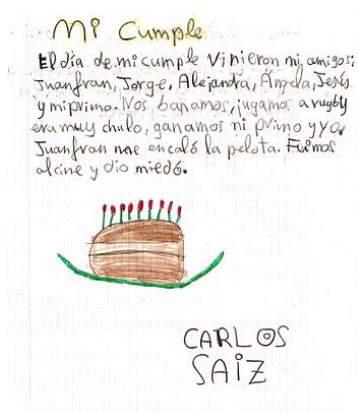 Mi Cumple
El día de mi cumple vinieron mi amigos:
Juanfran, Jorge, Alejandra, Ángela, Jesús
y mi primo. Nos bañamos, jugamos a rugby
era muy chulo, ganamos ni primo y yo.
Juanfran me encaló la pelota. Fuimos
al cine y dio miedó.
CARLOS
SAiZ